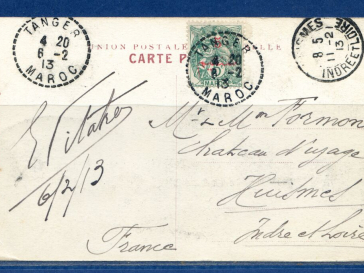 TANGER
4 20
6 -2
13
MAROC
UNION POSTALE UNIVERSELLE
CARTE P
TANGER
4 20
6 -2
13
MAROC
HUISMES
8 5
11-2
13
INDRE ET LOIRE
6/2/13
Mr & Mme Formon
Chateau d'Uzage
Huismes
Indre et Loire
France